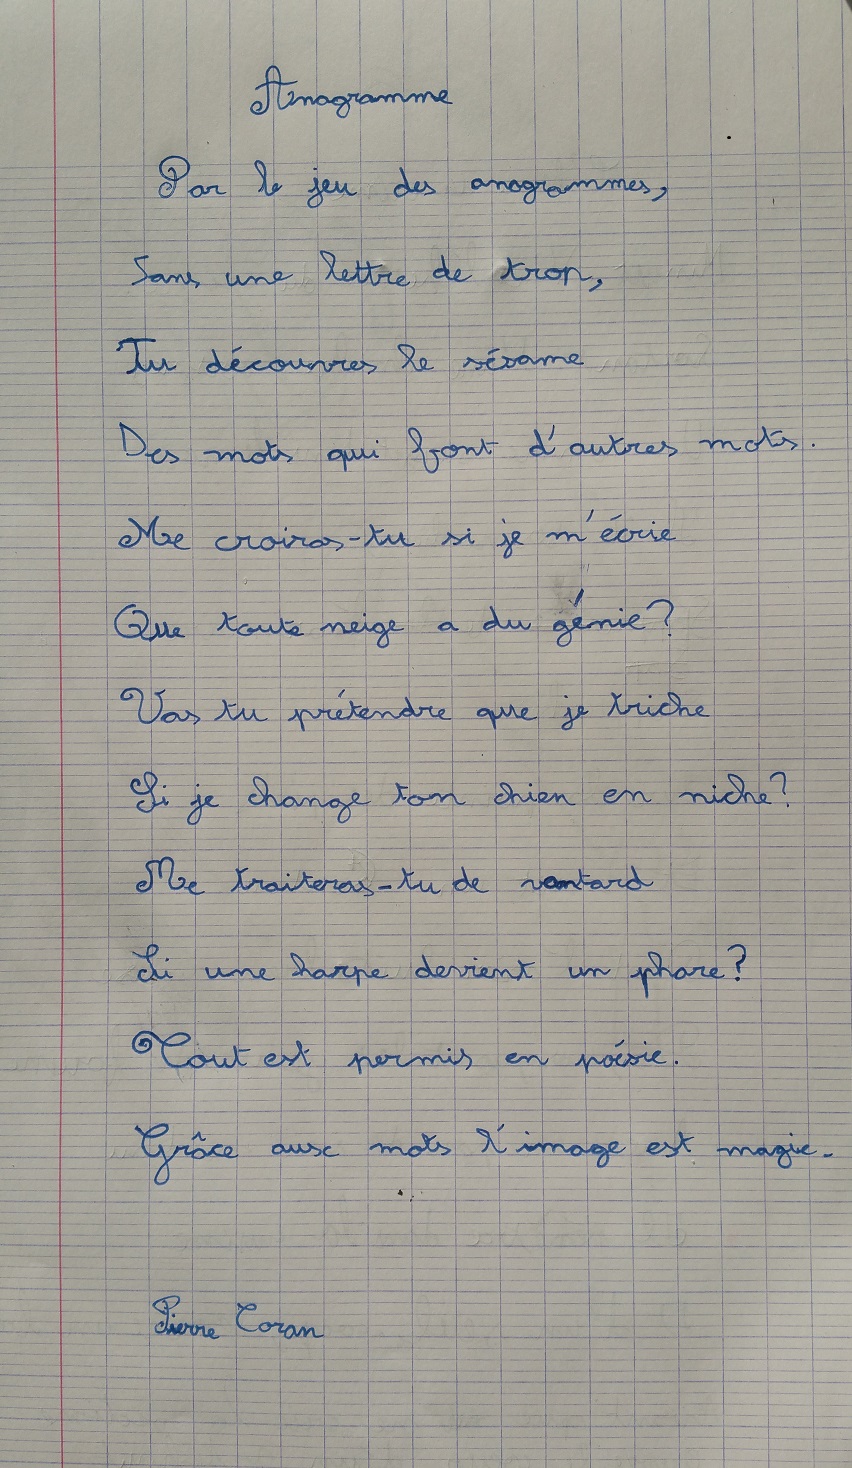 Anagramme
Par le jeu des anagrammes,
Sans une lettre de trop,
Tu découvres le sésame
Des mots qui font d'autres mots.
Me croiras-tu si je m'écrie
Que toute neige a du génie?
Vas tu prétendre que je triche
Si je change ton chien en niche?
Me traiteras-tu de vantard
Si une harpe devient un phare?
Tout est permis en poésie.
Grâce aux mots l'image est magie.
Pierre Coran